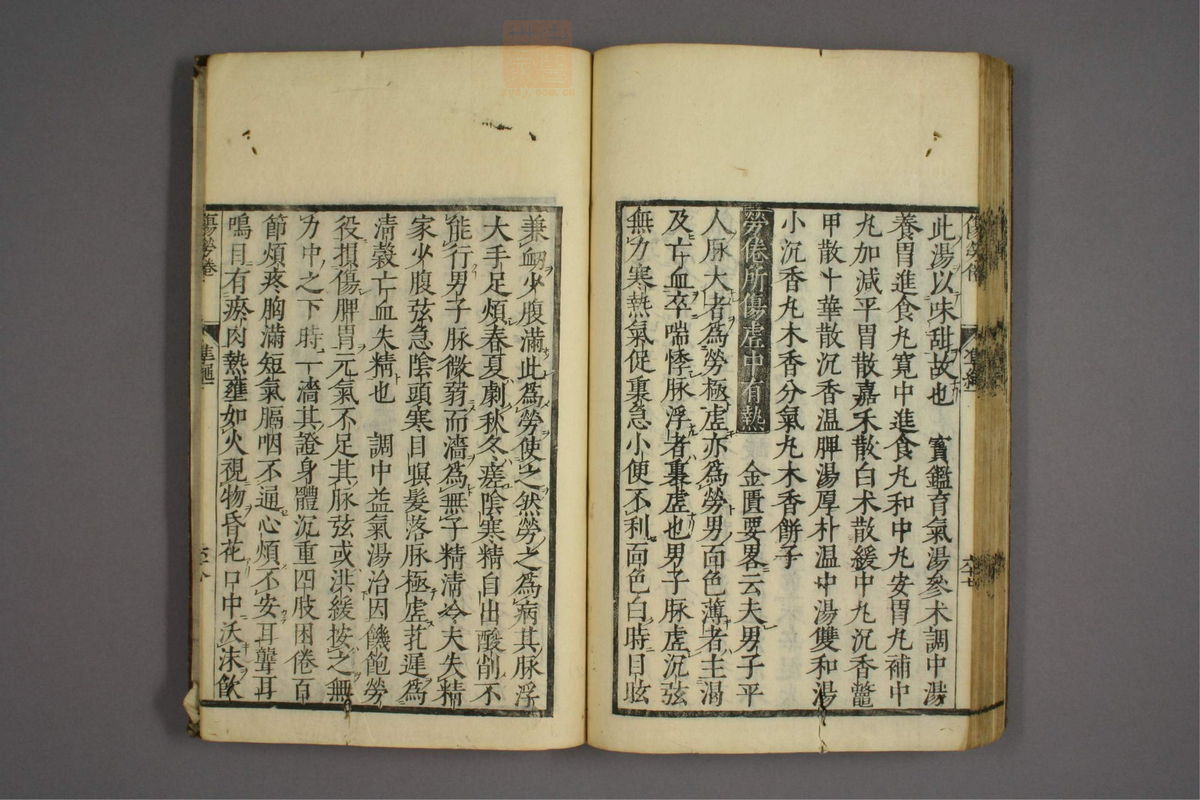 此湯以味甜故也　寶鑑育氣湯參朮調中湯
養胃進食丸寬中進食丸和中丸安胃丸補中
丸加減平胃散嘉禾散白朮散緩中丸沉香鱉
甲散十華散沉香温脾湯厚朴温中湯雙和湯
小沉香丸木香分氣丸木香餅子
勞倦所傷虛中有熱　金匱要畧云夫男子平
人脉大者為勞極虛亦為勞男面色薄者主渴
及亡血卒喘悸脉浮者裏虛也男子脉虛沉弦
無力寒熱氣促裏急小便不利面色白時目眩
兼衂少腹滿此為勞使之然勞之為病其脉浮
大手足煩春夏劇秋冬瘥陰寒精自出酸削不
能行男子脉微弱而濇為無子精清冷夫失精
家少腹弦急陰頭寒目瞑髮落脉極虛芤遲為
清穀亡血失精也　調中益氣湯治因饑飽勞
役損傷脾胃元氣不足其脉弦或洪緩按之無
力中之下時一濇其證身體沉重四肢困倦百
節煩疼胸滿短氣膈咽不通心煩不安耳聾耳
鳴目有瘀肉熱壅如火視物昏花口中沃沫飲
傷勞倦
準繩